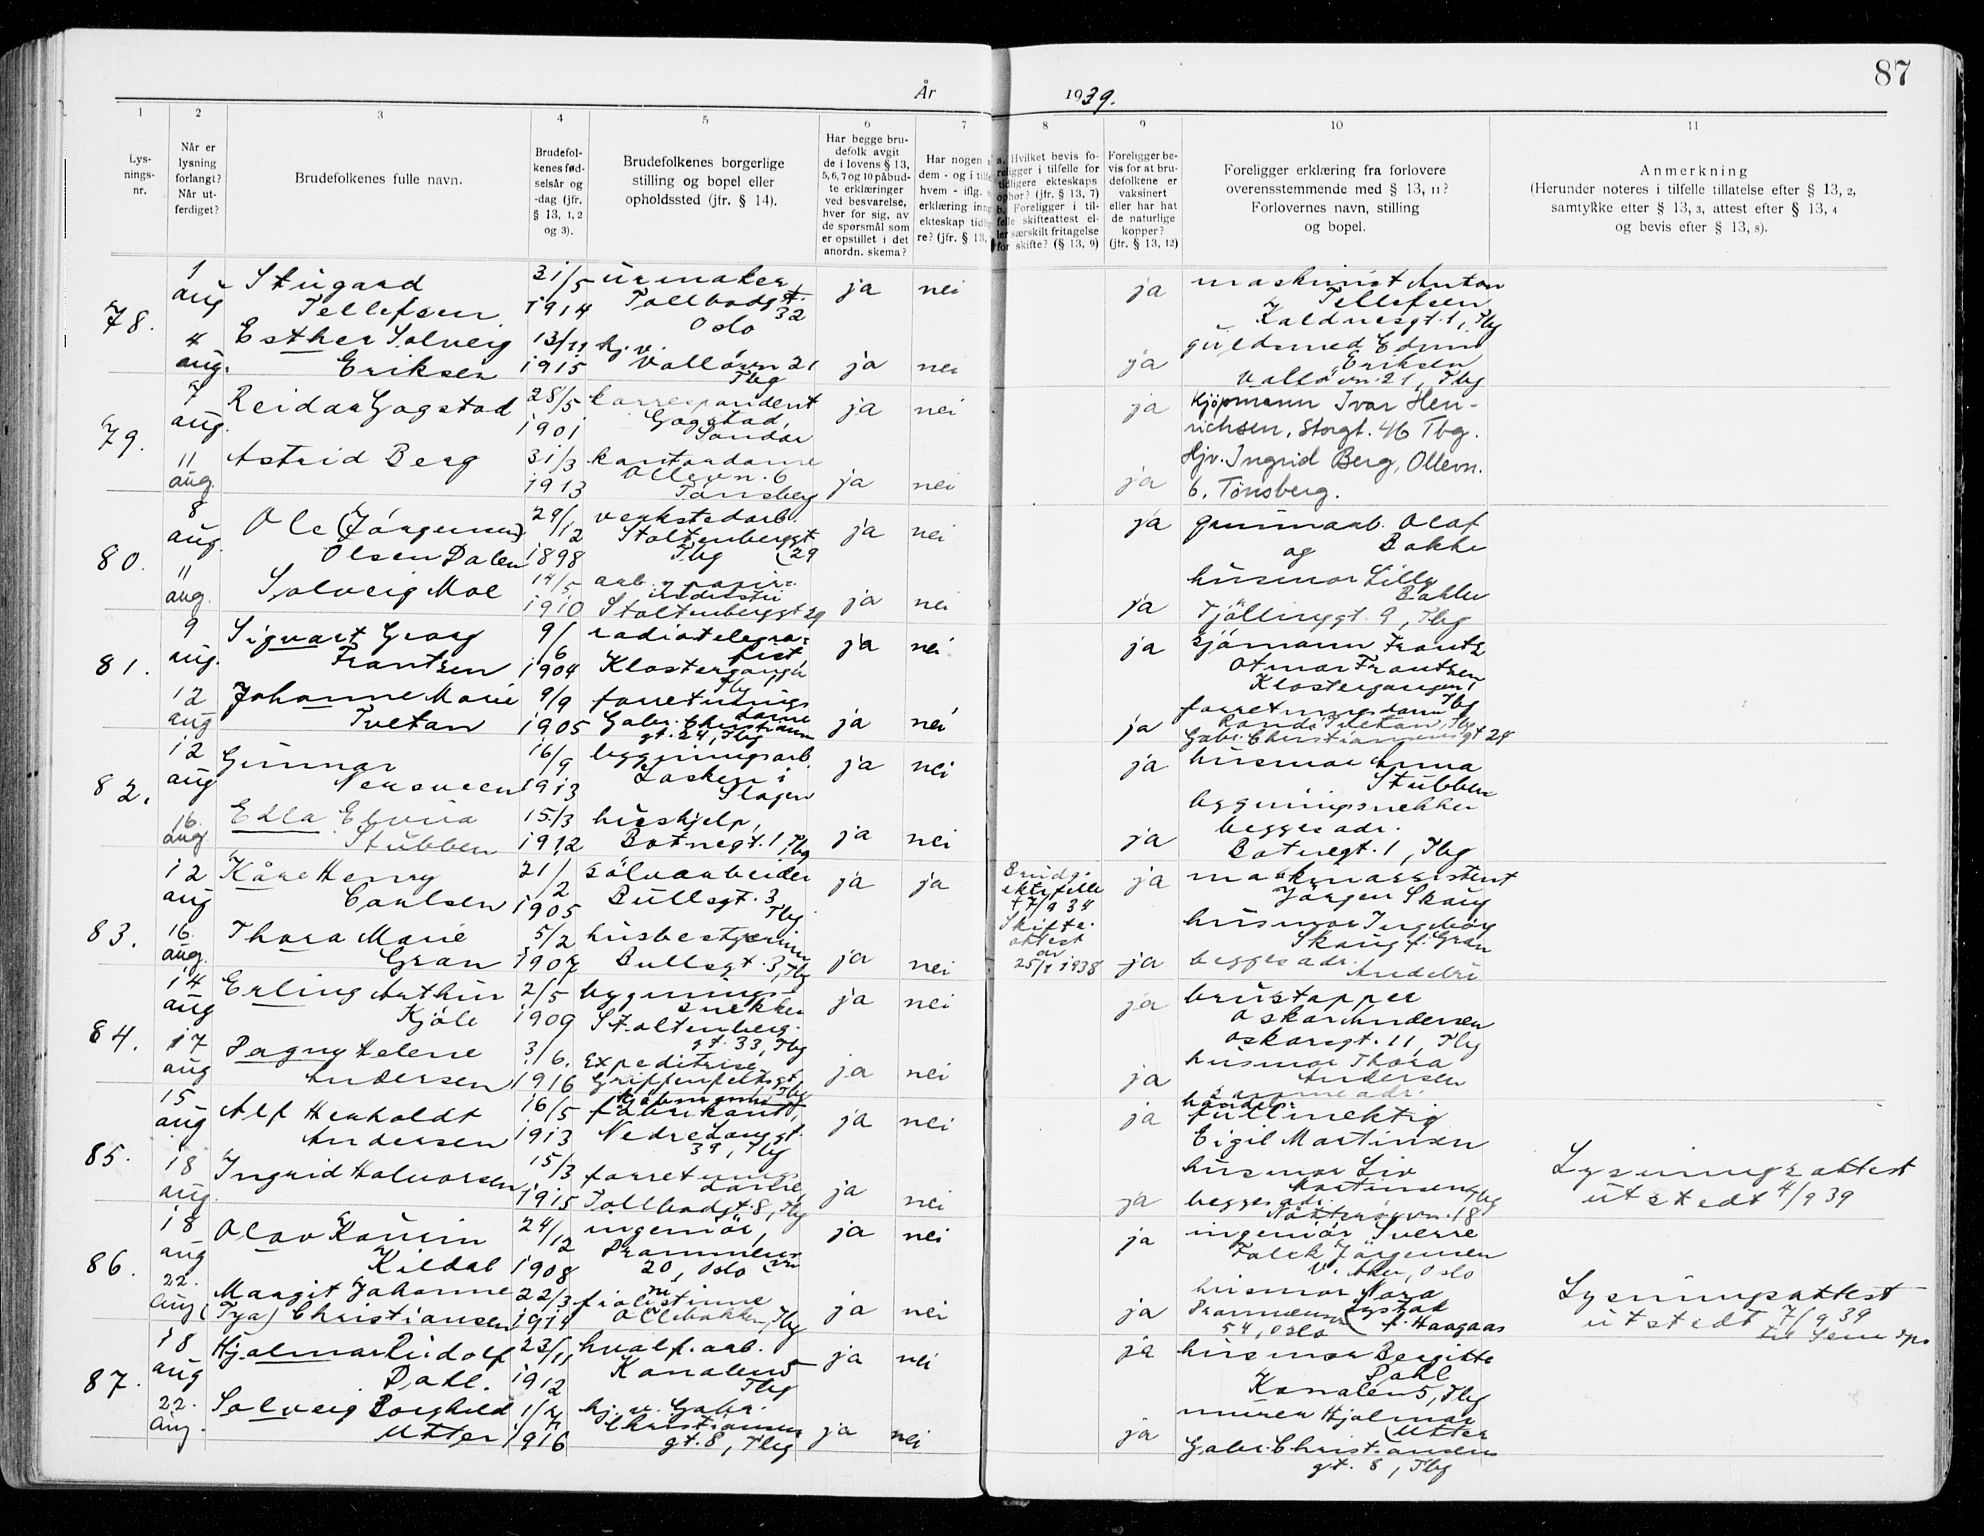 87
År 1939.
1 2 3 4 5 6 7 8 9 10 11
Lys-
nings-
nr.
Når er
lysning
forlangt?
Når ut-
ferdiget?
Brudefolkenes fulle navn.
Brudefol-
kenes fød-
selsår og
-dag (jfr.
§ 13, 1, 2
og 3).
Brudefolkenes borgerlige
stilling og bopel eller
opholdssted (jfr. § 14).
Har begge bru-
defolk avgit
de i lovens § 13,
5, 6, 7 og 10 påbud-
te erklæringer
ved besvarelse,
hver for sig, av
de spørsmål som
er opstillet i det
anordn. skema?
Har nogen a
dem - og i tilfe
hvem - iflg. s
erklæring inng
ekteskap tidlig
re? (jfr. § 13,
a. Hvilket bevis fo-
religger i tilfelle for
tidligere ekteskaps
ophør? (jfr. § 13, 7)
b. Foreligger i til-
felle skifteattest el-
ler særskilt fritagelse
for skifte? (§ 13, 9)
Foreligger be-
vis for at bru-
defolkene er
vaksinert
eller har hat
de naturlige
kopper?
(jfr. § 13, 12)
Foreligger erklæring fra forlovere
overensstemmende med § 13, 11?
Forlovernes navn, stilling
og bopel.
Anmerkning
(Herunder noteres i tilfelle tillatelse efter § 13, 2,
samtykke efter § 13, 3, attest efter § 13, 4
og bevis efter § 13, 8).
78.
1 aug
Stugard
Tellefsen
31/5
1914
urmaker
Tollbodgt.
32
Oslo
ja nei ja
maskinist Anton
Tellefsen
Kaldnesgt. 1, Tbg
4 aug.
Esther Solveig
Eriksen
13/11
1915
hj. v.
Valløvn 21
Tbg
ja nei ja
gullsmed Edvin
Eriksen
Valløvn. 21, Tbg
79.
7 aug.
Reidar Gogstad
28/5
1901
korrespondent
Gogstad,
Sandar
ja nei ja
Kjøpmann Ivar Hen-
richsen, Storgt. 46 Tbg.
11 aug.
Astrid Berg
31/3
1913
kontordame
Ollevn. 6
Tønsberg
ja nei ja
Hjv. Ingrid Berg, Ollevn.
6, Tønsberg.
80.
8 aug.
Ole (Jørgensen)
Olsen Dalen
29/12
1898
verkstedarb.
Stoltenberggt.
Tbg (29
ja nei ja
grunnarb. Olaf
og Bakke
11 aug.
Solveig Moe
14/5
1910
arb. v. papir-
industri
Stoltenberggt 29
ja nei ja
husmor Lilly
Bakke
Tjøllinggt. 9, Tbg
81.
9 aug.
Sigvart Georg
Frantzen
9/6
1904
radiotelegra-
fist,
Klostergangen
Tbg
ja nei ja
sjømann Frantz
Otmar Frantzen
Klostergangen,
Tbg
12 aug
Johanne Marie
Tvetan
9/9
1905
forretnings
dame
Gabr. Christiansens
gt. 24, Tbg
ja nei ja
forretningsdame
Randi Tvetan, Tbg
Gabr. Christiansensgt 24
82.
12 aug
Gunnar
Nersveen
16/9
1913
bygningsarb.
Basken i
Slagen
ja nei ja
husmor Anna
Stubben
bygningsnekker
16. aug
Edla Elvina
Stubben
15./3
1912
hushjelp,
Botnegt. 1, Tbg
ja nei ja
begges adr.
Botnegt. 1, Tbg
83.
12 aug
Kåre Henry
Carlsen
21/2
1905
sølvarbeider
Bullsgt. 3
Tbg.
ja ja
Brudg.
ektefelle
† 7/9 34
Skifte-
attest
av
25/4 1938
ja
maskinassistent
Jørgen Skaug
16. aug.
Thora Marie
Gran
5/2
1907
husbestyrerinne
Bullsgt. 3, Tbg
ja nei ja
husmor Ingeborg
Skaug f. Gran
begges adr.
Andebu
84.
14 aug
Erling Arthur
Kjøle
2/5
1909
bygnings-
snekker
Stoltenberg-
gt. 33, Tbg
ja nei ja
brustapper
Oskar Andersen
Oskarsgt. 11, Tbg
17 aug
Dagny Helene
Andersen
3/6.
1916
Expeditrise,
Griffenfeldtsgt,
Tbg
ja nei ja
husmor Thora
Andersen
samme adr.
85.
15 aug
Alf Herholdt
Andersen
16/5
1913
fabrikant,
Nedre Langgt.
39, Tbg
ja nei ja
handels-
fullmektig
Eigil Martinsen
18 aug.
Ingrid Halvorsen
15/3
1915
forretnings
dame,
Tollbodgt. 8, Tbg
ja nei ja
husmor Liv
Martinsen
begges adr. Tbg
Nøtterøyvn. 18
Lysningsattest
utstedt 4/9 39
86.
18 aug
Olav Kaurin
Kildal
24/12
1908
ingeniør,
Drammens-
vn
20, Oslo
ja nei ja
ingeniør Sverre
Falck Jørgensen
V. Aker, Oslo
22. aug
Margit Johanne
(Tya) Christiansen
22/3
1914
fiolinistinne
Ollebakken, Tbg
ja nei ja
husmor Nora
Lystad
Drammensvn. f. Haagaas
54, Oslo
Lysningsattest
utstedt 7/9 39
til Sem spr.
87.
18 aug
Hjalmar Rudolf
Dahl.
23/11
1912
hvalf. arb.
Kanalen 5
Tbg
ja nei ja
husmor Bergitte
Dahl
Kanalen 5, Tbg
22. Aug.
Solveig Borghild
Utter
1/4
1916
hj. v. Gabr.
Christiansens
gt. 8, Tbg
ja nei ja
murer Hjalmar
Utter
Gabr. Christiansens
gt. 8, Tbg